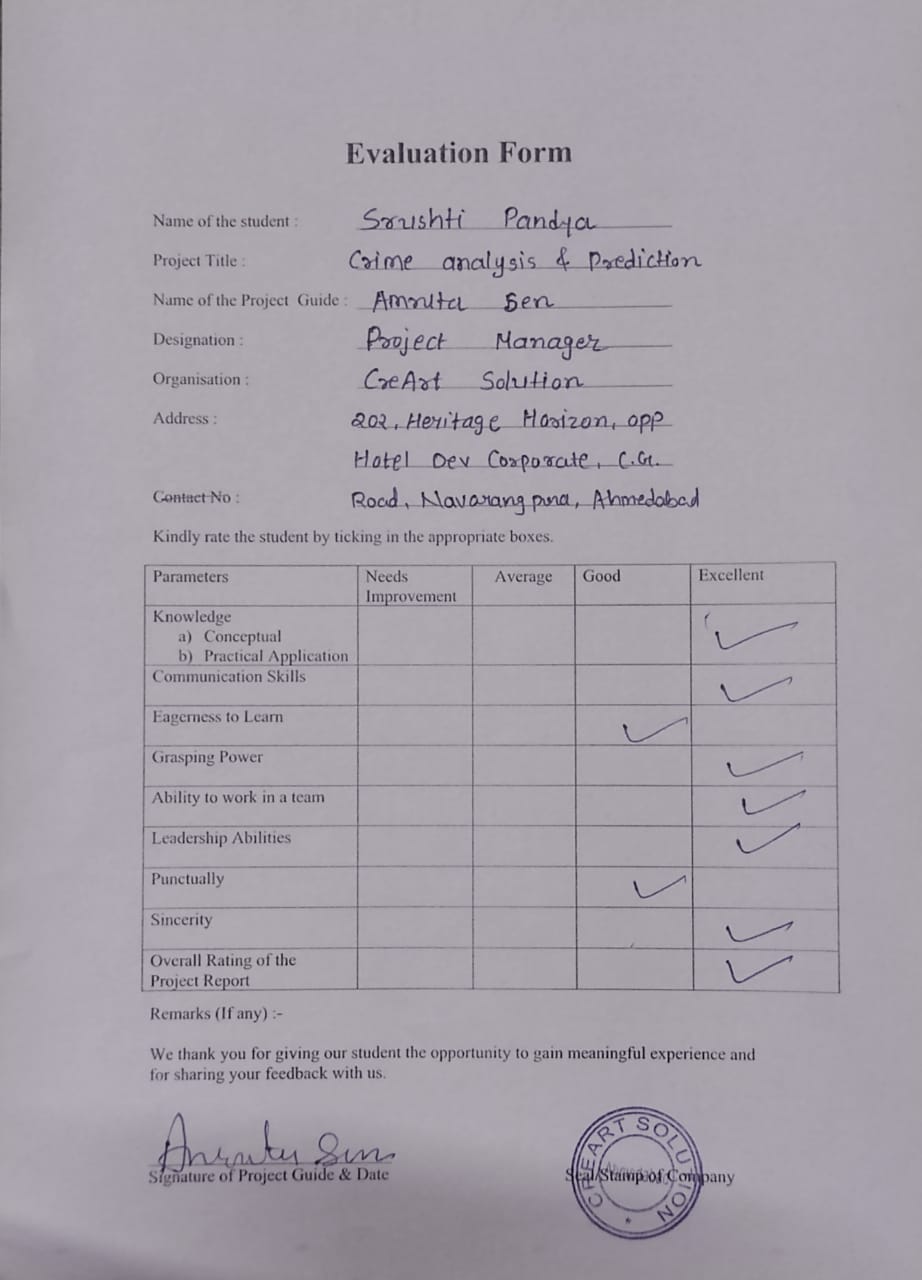 Evaluation Form
Name of the student : Srushti Pandya
Project Title : Crime analysis & Prediction
Name of the Project Guide : Amruta Sen
Designation : Project Manager
Organisation : CreArt Solution
Address : 202, Heritage Horizon, opp
Hotel Dev Corporate, C.G.
Contact No : Road, Navarangpura, Ahmedabad
Kindly rate the student by ticking in the appropriate boxes.
Parameters Needs Improvement Average Good Excellent
Knowledge
a) Conceptual
b) Practical Application ✓
Communication Skills ✓
Eagerness to Learn ✓
Grasping Power ✓
Ability to work in a team ✓
Leadership Abilities ✓
Punctually ✓
Sincerity ✓
Overall Rating of the
Project Report ✓
Remarks (If any) :-
We thank you for giving our student the opportunity to gain meaningful experience and
for sharing your feedback with us.
Amruta Sen
Signature of Project Guide & Date
Seal/Stamp of Company
CREART SOLUTION